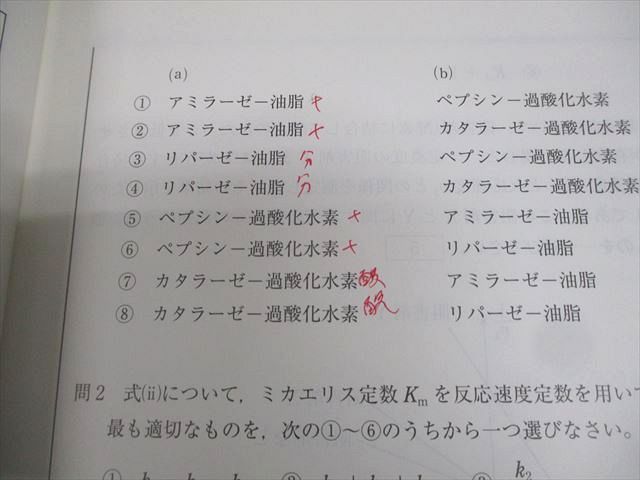 (a) (b)
① アミラーゼ－油脂 + ペプシン－過酸化水素
② アミラーゼ－油脂 + カタラーゼ－過酸化水素
③ リパーゼ－油脂 分 ペプシン－過酸化水素
④ リパーゼ－油脂 分 カタラーゼ－過酸化水素
⑤ ペプシン－過酸化水素 + アミラーゼ－油脂
⑥ ペプシン－過酸化水素 + リパーゼ－油脂
⑦ カタラーゼ－過酸化水素 酸 アミラーゼ－油脂
⑧ カタラーゼ－過酸化水素 酸 リパーゼ－油脂
問2 式(ii)について，ミカエリス定数 Km を反応速度定数を用い
最も適切なものを，次の①～⑥のうちから一つ選びなさい。
k2